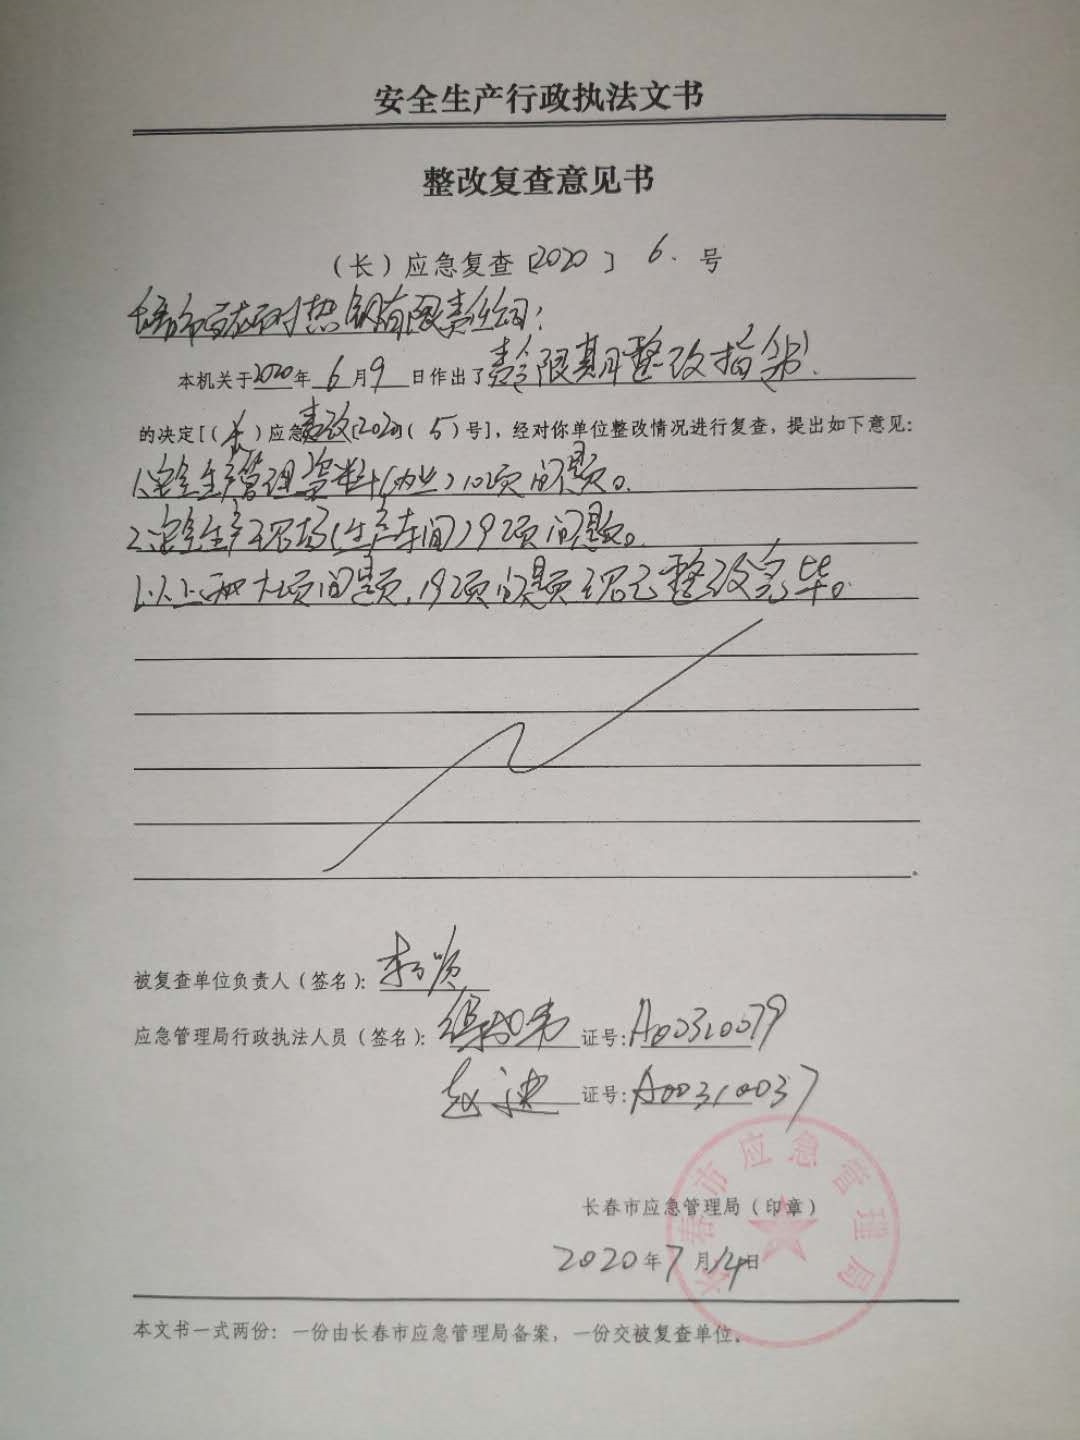 安全生产行政执法文书
整改复查意见书
（长）应急复查〔2020〕6.号
长春市 耐热 有限责任公司：
本机关于2020年6月9日作出了责令限期整改指令书.
的决定[（长）应急责改[2020]（5）号]，经对你单位整改情况进行复查，提出如下意见：
1.安全生产管理资料（内业）10项问题。
2.安全生产现场（生产车间）9项问题。
1.以上两大项问题，19项问题现已整改完毕。
被复查单位负责人（签名）：
应急管理局行政执法人员（签名）： 证号：A00310079
赵 证号：A00310037
长春市应急管理局
长春市应急管理局（印章）
2020年7月14日
本文书一式两份：一份由长春市应急管理局备案，一份交被复查单位。